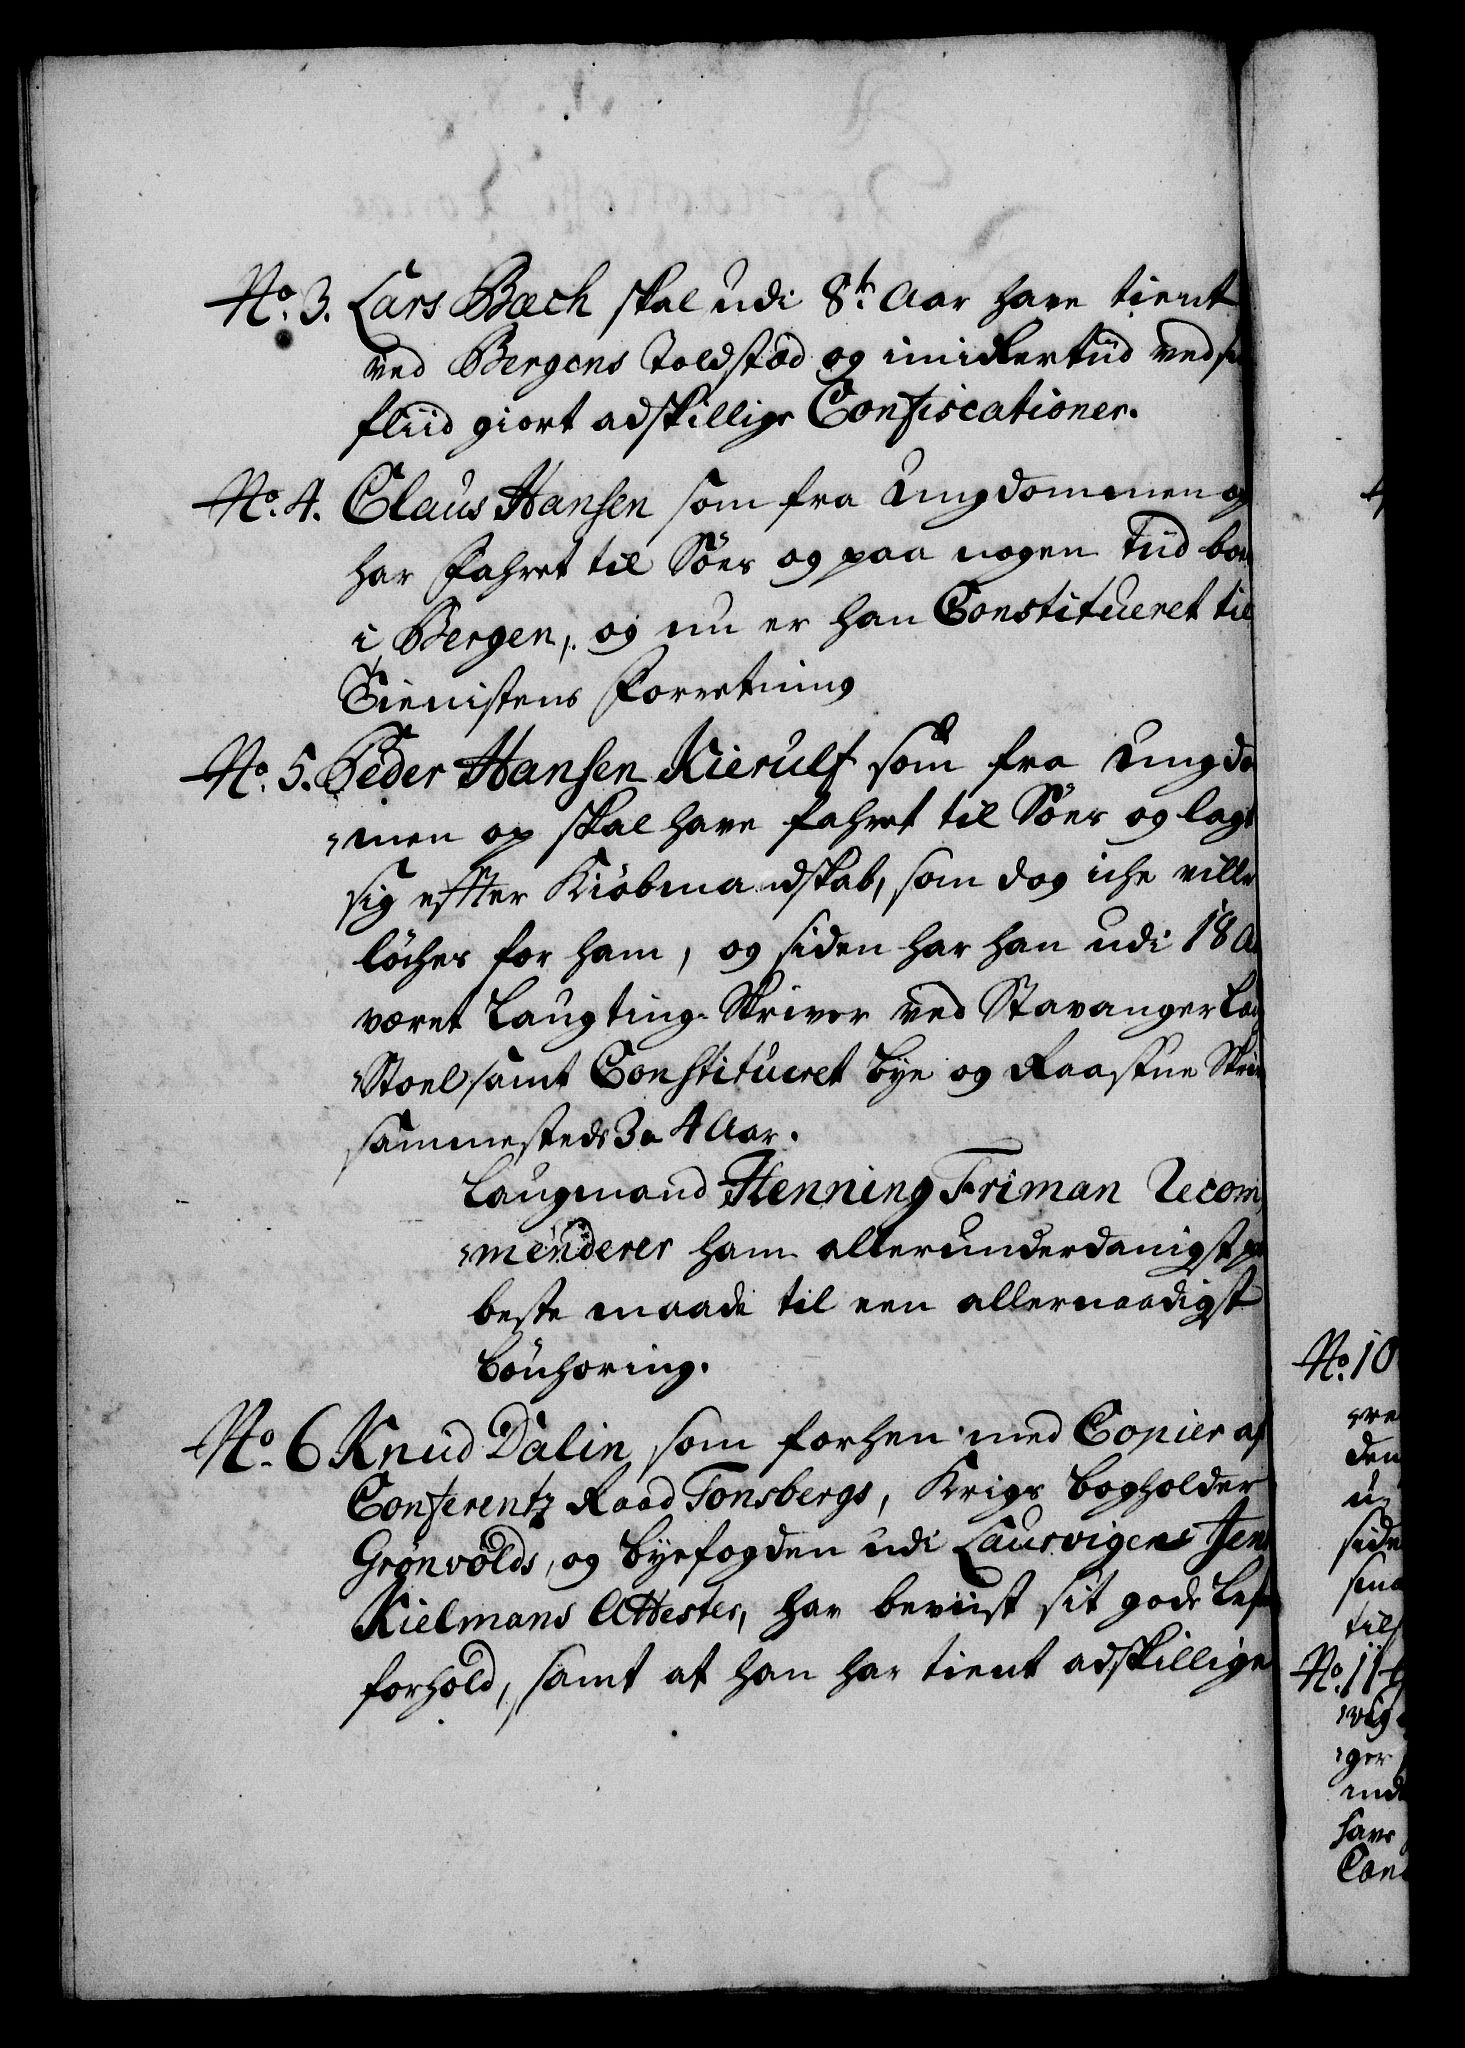 No. 3. Lars Bæch skal udi 8te Aar have tient
ved Bergens Toldstæd og imidlertiid ved
fliid giort adskillige Confiscationer.
No. 4. Claus Hansen som fra Ungdommen op
har fahret til Söes og paa nogen Tiid
i Bergen, og nu er han Constitueret til
Tienistens Forretning
No. 5. Peder Hansen Kierulf som fra Ungdo
men op skal have fahret til Söes og lagt
sig effter Kiöbmandskab, som dog iche ville
löches for ham, og siden har han udi 18
været Laugting-Skriver ved Stavanger
Stoel samt Constitueret Bye og Raastue
sammesteds 3 a 4 Aar.
Laugmand Henning Friman Recom
menderer ham allerunderdanigst
beste maade til een allernaadigst
bönhöring.
No. 6 Knud Dalin som forhen med Copier af
Conferentz Raad Tonsbergs, Krigs Bogholder
Grönvolds, og Byefogden udi Laurvigen Jens
Kielmans Attester, har beviist sit gode
forhold, samt at han har tient adskillige
No. 10
den
side
No. 11